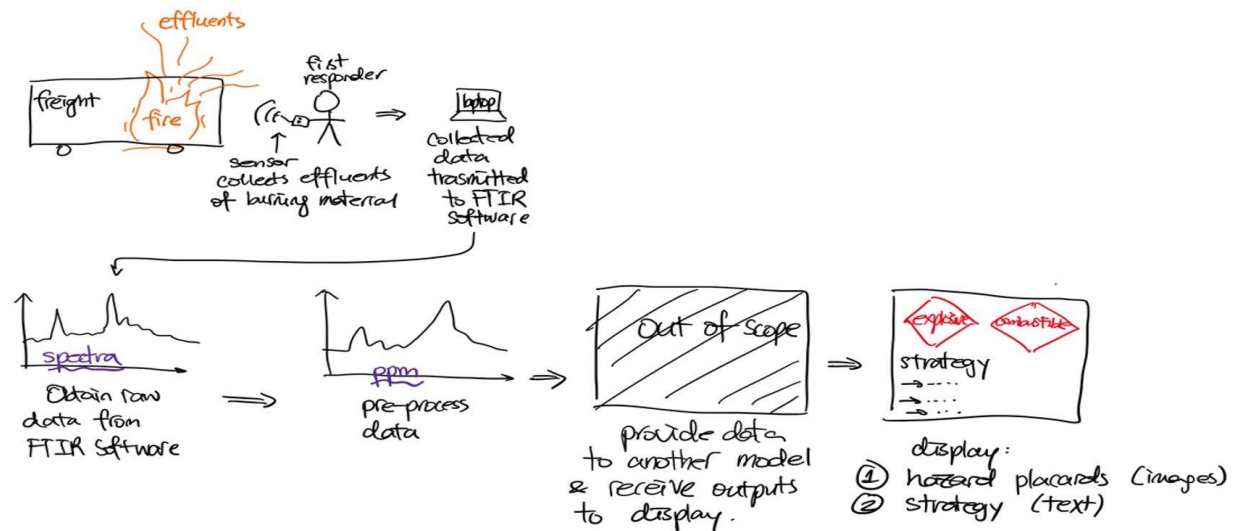 effluents
freight
fire
first
responder
sensor
collects effluents
of burning material
laptop
collected
data
trasmitted
to FTIR
software
spectra
Obtain raw
data from
FTIR Software
ppm
pre-process
data
Out of scope
provide data
to another model
& receive outputs
to display.
explosive
combustible
strategy
display:
① hazard placards (images)
② strategy (text)